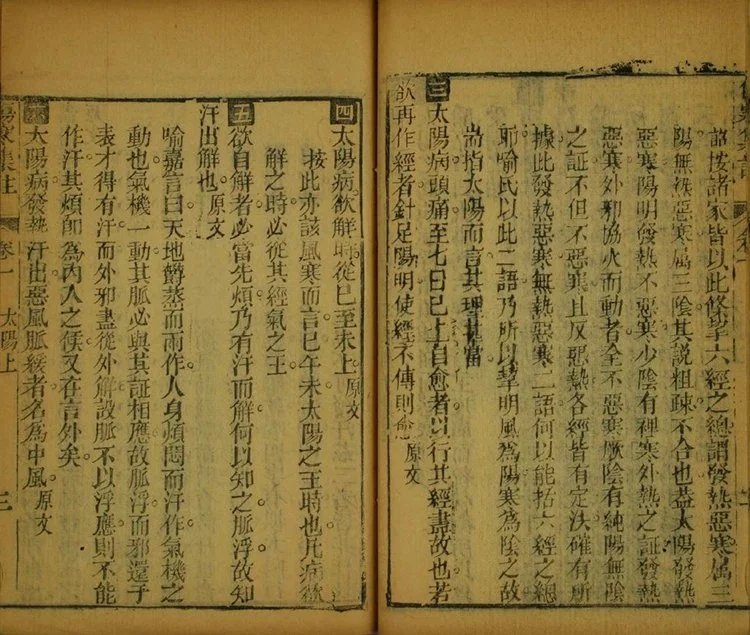 詔按諸家皆以此條挈六經之總謂發熱惡寒属三
陽無熱惡寒属三陰其說粗疎不合也葢太陽發熱
惡寒陽明發熱不惡寒少陰有裡寒外熱之証發熱
惡寒外邪協火而動者全不惡寒厥陰有純陽無
之証不但不惡寒且反惡熱各經皆有定法確有所
據此發熱惡寒無熱惡寒二語何以能括六經之總
耶喻氏以此二語乃所以挈明風為陽寒為陰之故
耑指太陽而言其理甚當
三太陽病頭痛至七日已上自愈者以行其經盡故也若
欲再作經者針足陽明使經不傳則愈原文
四太陽病欲解時從巳至未上原文
按此亦該風寒而言巳午未太陽之王時也凡病欲
解之時必從其經氣之王
五欲自解者必當先煩乃有汗而解何以知之脈浮故知
汗出解也原文
喻嘉言曰天地欝蒸而雨作人身煩悶而汗作氣機之
動也氣機一動其脈必與其証相應故脈浮而邪還于
表才得有汗而外邪盡從外解設脈不以浮應則不能
作汗其煩即為內入之候又在言外矣
太陽病發熱汗出惡風脈緩者名為中風原文
傷寒集註 卷一 太陽上 三